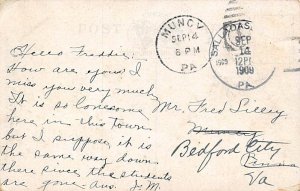 POST
MUNCY
SEP 14
6 PM
PA
SALLADAS
SEP
14
12 PM
1909
1909
PA.
Hello Freddie:
How are you I
miss you very much
It is so lonesome
here in this town
but I suppose it is
the same way down
there since the students
are gone ans. J.M.
Mr. Fred Lilley
Muncy
Bedford City
Penna
Va